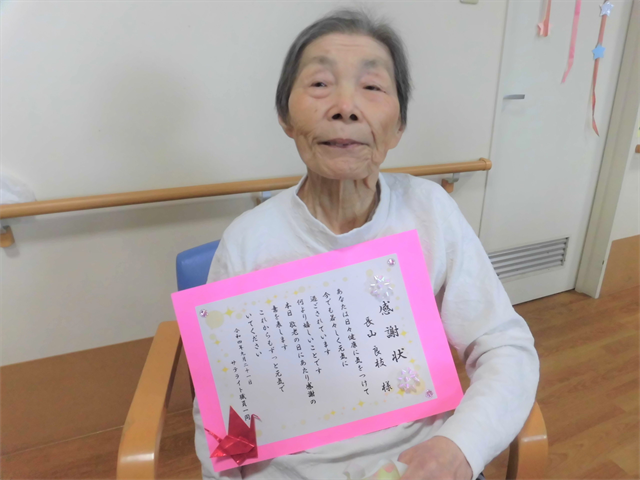 感謝状
長山 良枝 様
あなたは日々健康に気をつけて
今でも若々しく元気に
過ごされています
何より嬉しいことです
本日 敬老の日にあたり感謝の
意を表します
これからもずっと元気で
いてください
令和四年九月二十一日
サテライト職員一同